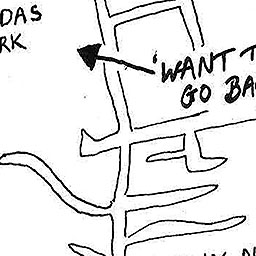 DAS
RK
'WANT T
GO BA